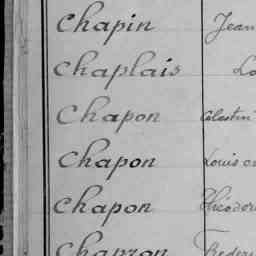 Chapin Jean
Chaplais Lo
Chapon Célestin
Chapon Louis
Chapon Théodor
Chapron Frédéri